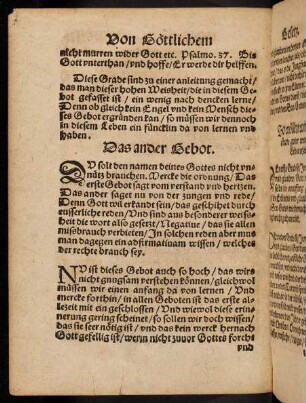 Von Göttlichem
nicht murren wider Gott etc. Psalmo. 37. Bis
Gott vnterthan / vnd hoffe / Er werde dir helffen.
Diese Grade sind zu einer anleitung gemacht /
das man dieser hohen Weisheit / die in diesem Ge-
bot gefasset ist / ein wenig nach dencken lerne /
Denn ob gleich kein Engel vnd kein Mensch die-
ses Gebot ergründen kan / so müssen wir dennoch
in diesem Leben ein füncklin da von lernen vnd
haben.
Das ander Gebot.
DV solt den namen deines Gottes nicht vn-
nütz brauchen. Mercke die ordnung / Das
erste Gebot sagt vom verstand vnd hertzen.
Das ander sagt nu von der zungen vnd rede /
Denn Gott wil erkandt sein / das geschihet durch
eusserliche reden / Vnd sind aus besonderer weis-
heit die wort also gesetzt / Negatiue / das sie allen
misbrauch verbieten / In solchen reden aber mus
man dagegen ein adfirmatiuam wissen / welches
der rechte brauch sey.
NV ist dieses Gebot auch so hoch / das wirs
nicht gnugsam verstehen können / gleichwol
müssen wir einen anfang da von lernen / Vnd
mercke forthin / in allen Geboten ist das erste alle-
zeit mit ein geschlossen / Vnd wiewol diese er-
innerung gering scheinet / so sollen wir doch wissen /
das sie seer nötig ist / vnd das kein werck hernach
Gott gefellig ist / wenn nicht zuuor Gottes forcht
vnd